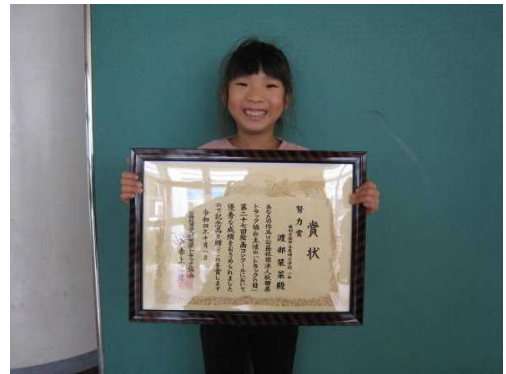 賞状
努力賞
渡部栞菜殿
あなたの作品は公益社団法人秋田県
トラック協会主催の「トラックの日」
第二十七回絵画コンクールにおいて
優秀な成績をおさめられました
ので記念品を贈りこれを賞します
令和四年十月一日